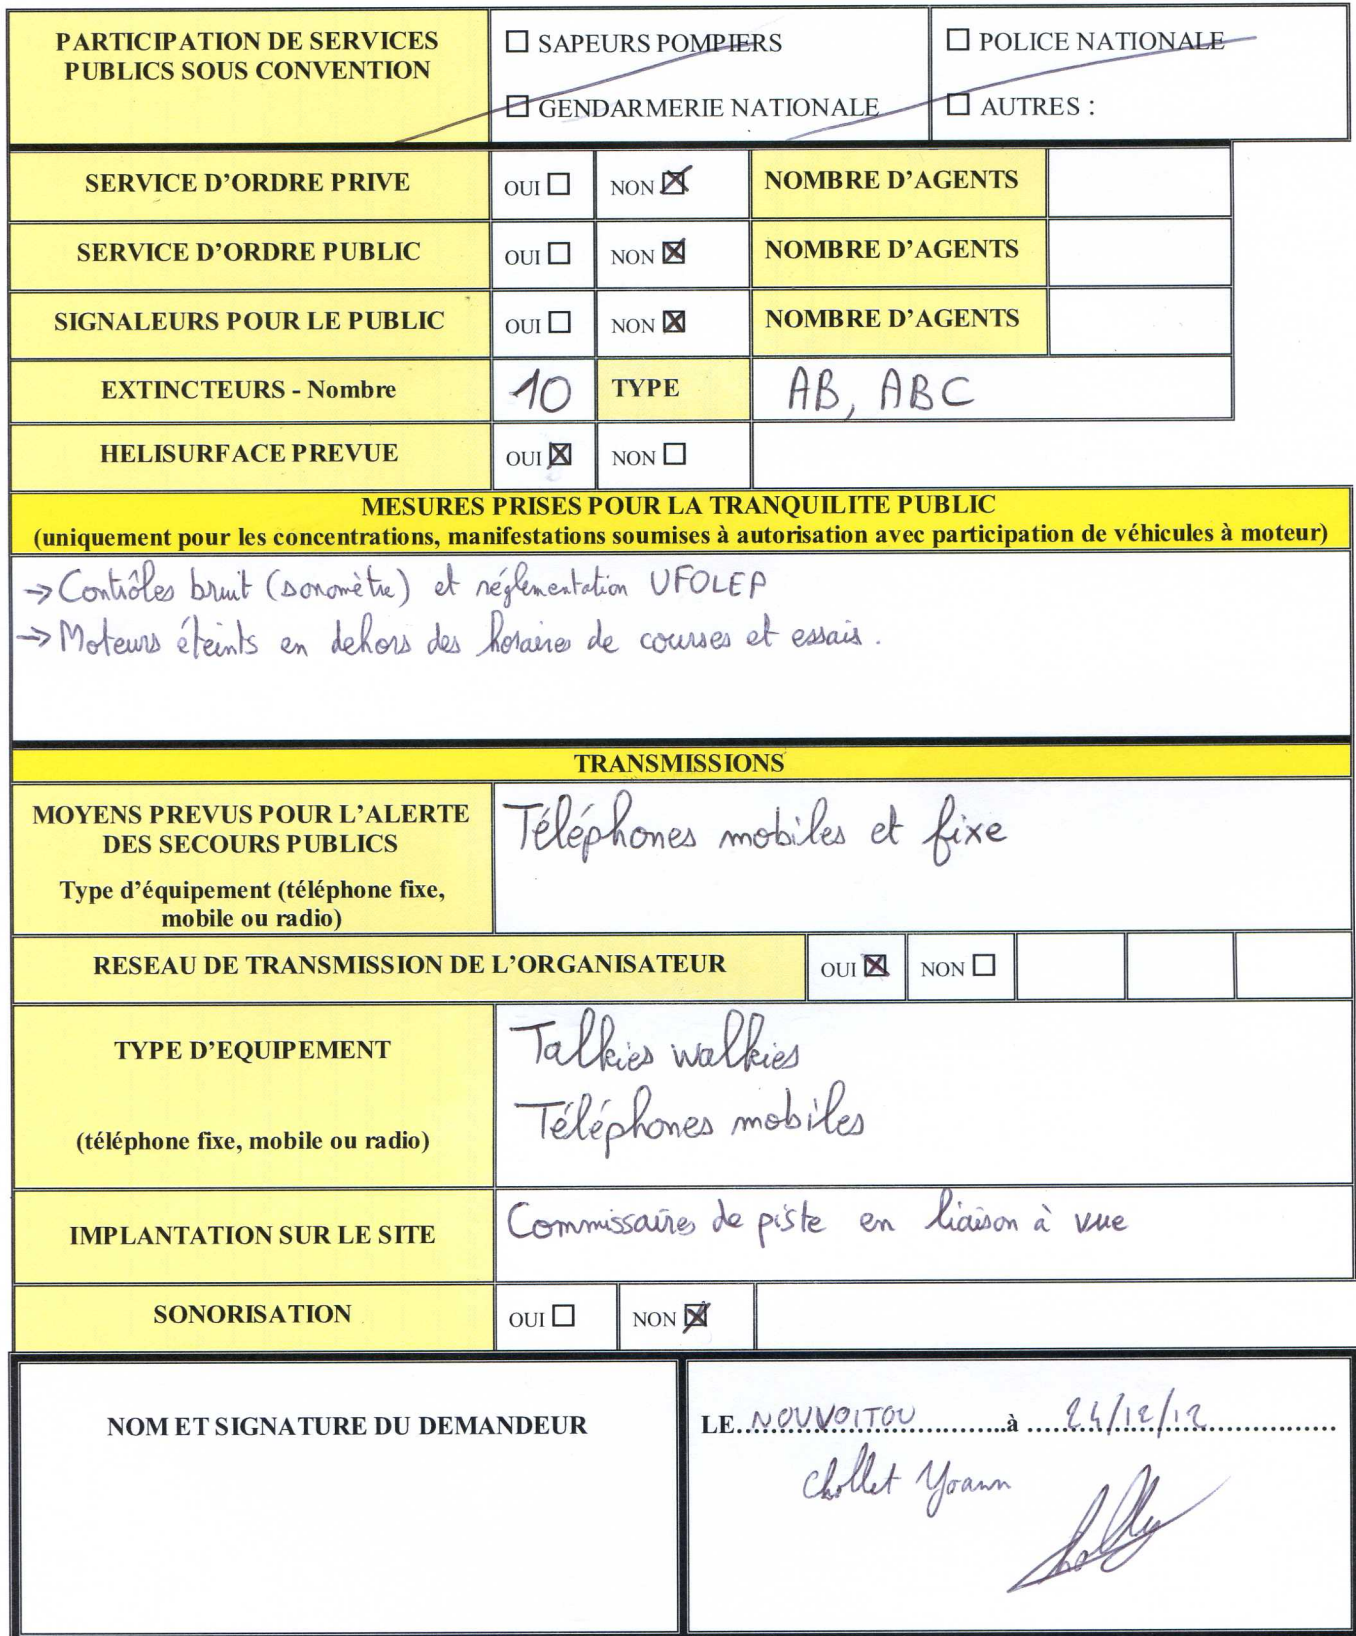 PARTICIPATION DE SERVICES
PUBLICS SOUS CONVENTION
☐ SAPEURS POMPIERS
☐ POLICE NATIONALE
☐ GENDARMERIE NATIONALE
☐ AUTRES :
SERVICE D'ORDRE PRIVE OUI ☐ NON ☒ NOMBRE D'AGENTS
SERVICE D'ORDRE PUBLIC OUI ☐ NON ☒ NOMBRE D'AGENTS
SIGNALEURS POUR LE PUBLIC OUI ☐ NON ☒ NOMBRE D'AGENTS
EXTINCTEURS - Nombre 10 TYPE AB, ABC
HELISURFACE PREVUE OUI ☒ NON ☐
MESURES PRISES POUR LA TRANQUILITE PUBLIC
(uniquement pour les concentrations, manifestations soumises à autorisation avec participation de véhicules à moteur)
→ Contrôles bruit (sonomètre) et réglementation UFOLEP
→ Moteurs éteints en dehors des horaires de courses et essais.
TRANSMISSIONS
MOYENS PREVUS POUR L'ALERTE
DES SECOURS PUBLICS
Type d'équipement (téléphone fixe,
mobile ou radio)
Téléphones mobiles et fixe
RESEAU DE TRANSMISSION DE L'ORGANISATEUR OUI ☒ NON ☐
TYPE D'EQUIPEMENT
(téléphone fixe, mobile ou radio)
Talkies walkies
Téléphones mobiles
IMPLANTATION SUR LE SITE Commissaires de piste en liaison à vue
SONORISATION OUI ☐ NON ☒
NOM ET SIGNATURE DU DEMANDEUR
LE NOUVOITOU à 24/12/12
Chollet Yoann